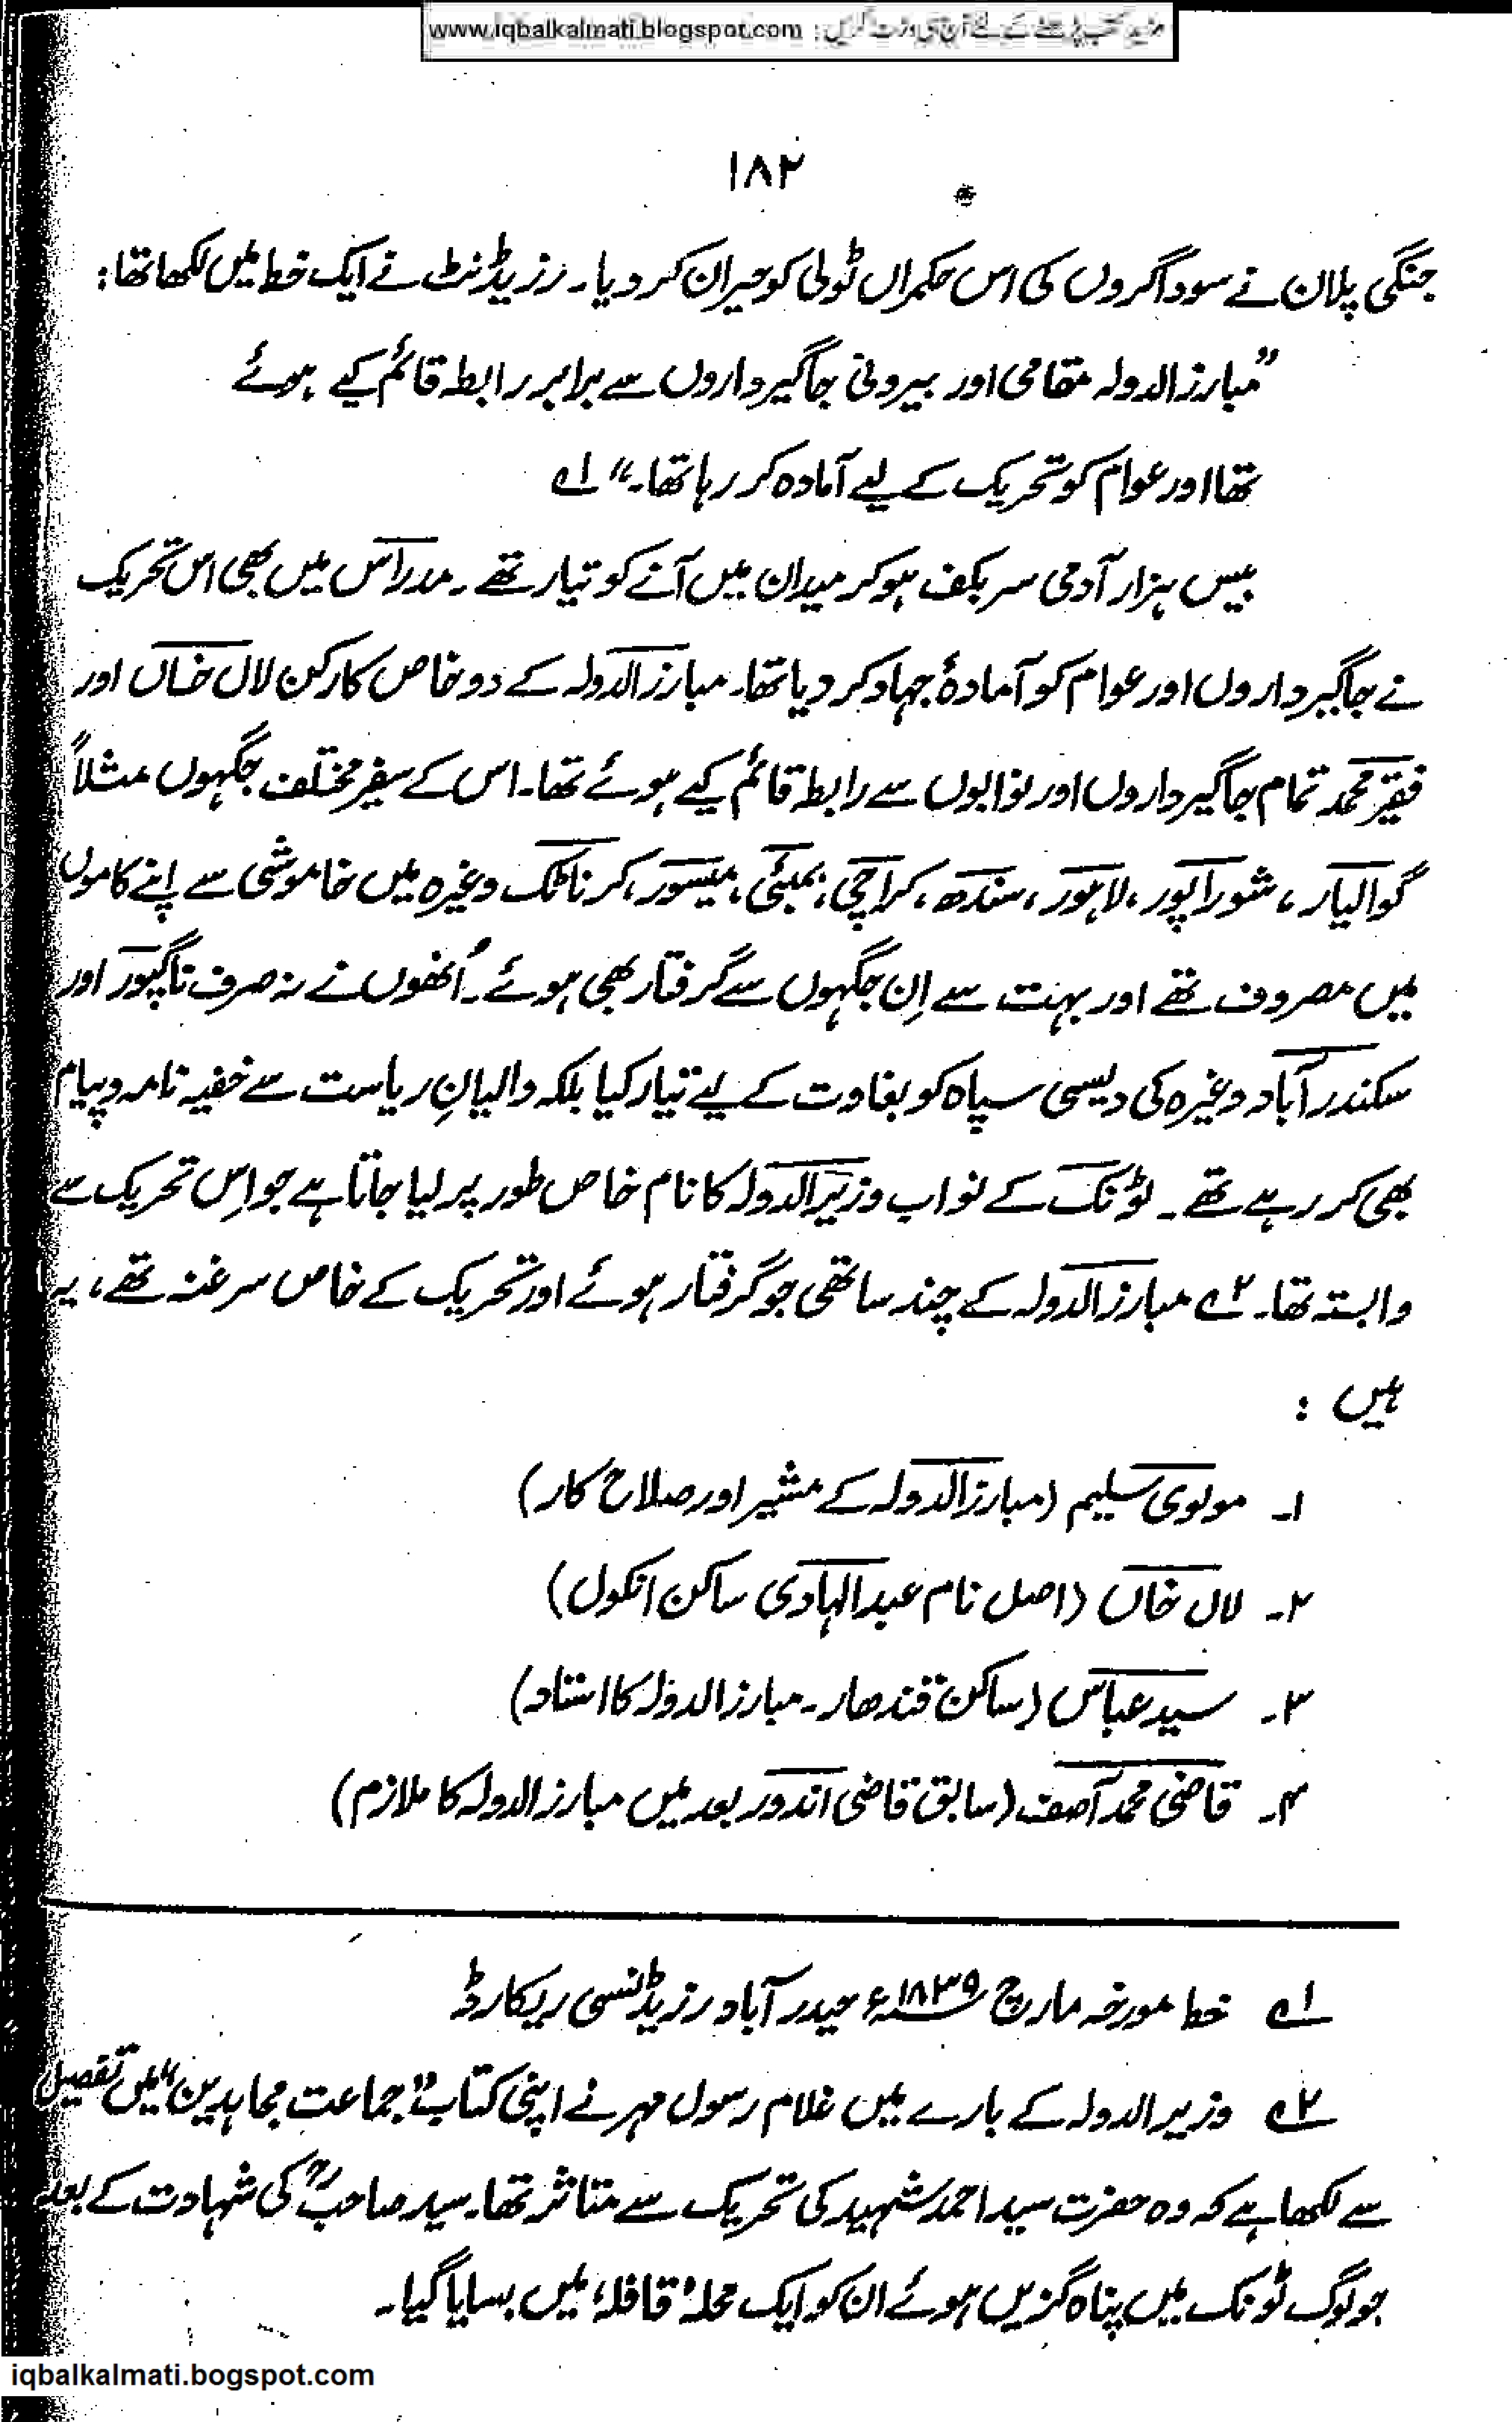 مزید کتب پڑھنے کے لئے آج ہی وزٹ کریں : www.iqbalkalmati.blogspot.com
۱۸۲
جنگی پلان نے سوداگروں کی اس حکمراں ٹولی کو حیران کر دیا۔ رزیڈنٹ نے ایک خط میں لکھا تھا:
”مبارزالدولہ مقامی اور بیرونی جاگیرداروں سے برابر رابطہ قائم کیے ہوئے
تھا اور عوام کو تحریک کے لیے آمادہ کر رہا تھا۔“ ۱؎
بیس ہزار آدمی سر بکف ہو کر میدان میں آنے کو تیار تھے۔ مدراس میں بھی اس تحریک
نے جاگیرداروں اور عوام کو آمادۂ جہاد کر دیا تھا۔ مبارزالدولہ کے دو خاص کارکن لال خاں اور
فقیر محمد تمام جاگیرداروں اور نوابوں سے رابطہ قائم کیے ہوئے تھا۔ اس کے سفیر مختلف جگہوں مثلاً
گوالیار، شوراپور، لاہور، سندھ، کراچی، بمبئی، میسور، کرناٹک وغیرہ میں خاموشی سے اپنے کاموں
میں مصروف تھے اور بہت سے اِن جگہوں سے گرفتار بھی ہوئے۔ اُنھوں نے نہ صرف ناگپور اور
سکندرآباد وغیرہ کی دیسی سپاہ کو بغاوت کے لیے تیار کیا بلکہ والیانِ ریاست سے خفیہ نامہ و پیام
بھی کر رہے تھے۔ ٹونک کے نواب وزیرالدولہ کا نام خاص طور پر لیا جاتا ہے جو اِس تحریک سے
وابستہ تھا۔ ۲؎ مبارزالدولہ کے چند ساتھی جو گرفتار ہوئے اور تحریک کے خاص سرغنہ تھے، یہ
ہیں :
۱۔ مولوی سلیم (مبارزالدولہ کے مشیر اور صلاح کار)
۲۔ لال خاں (اصل نام عبدالہادی ساکن انکول)
۳۔ سید عباس (ساکن قندھار۔ مبارزالدولہ کا استاد)
۴۔ قاضی محمد آصف (سابق قاضی اندور بعد میں مبارزالدولہ کا ملازم)
۱؎ خط مورخہ مارچ ۱۸۳۹ء حیدرآباد رزیڈنسی ریکارڈ
۲؎ وزیرالدولہ کے بارے میں غلام رسول مہر نے اپنی کتاب ”جماعت مجاہدین“ میں تفصیل
سے لکھا ہے کہ وہ حضرت سید احمد شہید کی تحریک سے متاثر تھا۔ سید صاحبؒ کی شہادت کے بعد
جو لوگ ٹونک میں پناہ گزیں ہوئے ان کو ایک محلہ ’قافلہ‘ میں بسایا گیا۔
iqbalkalmati.bogspot.com